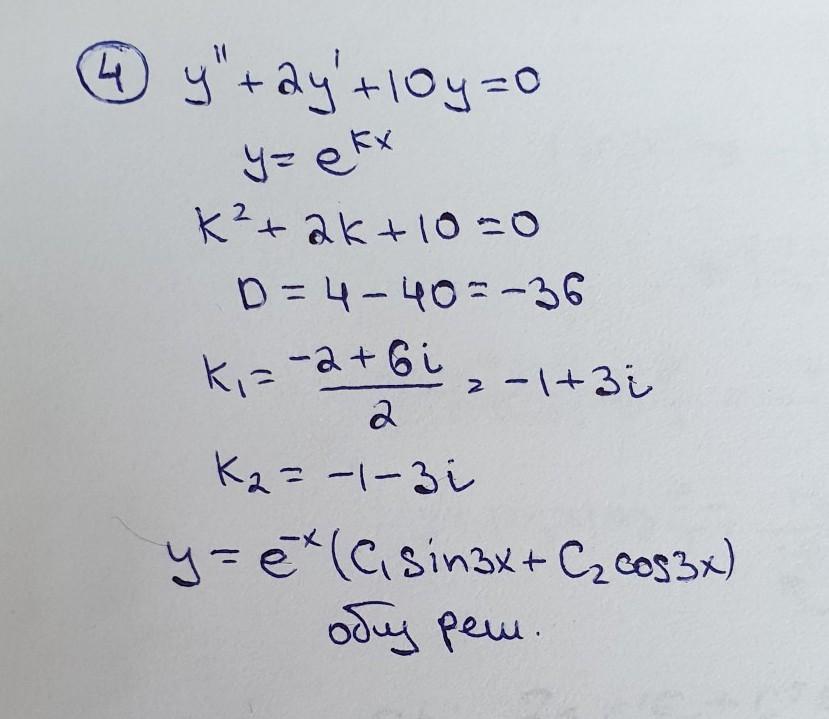 ④ y'' + 2y' + 10y = 0
y = e^{kx}
k² + 2k + 10 = 0
D = 4 - 40 = -36
k₁ = \frac{-2 + 6i}{2} = -1 + 3i
k₂ = -1 - 3i
y = e^{-x}(C₁ sin3x + C₂ cos3x)
общ реш.